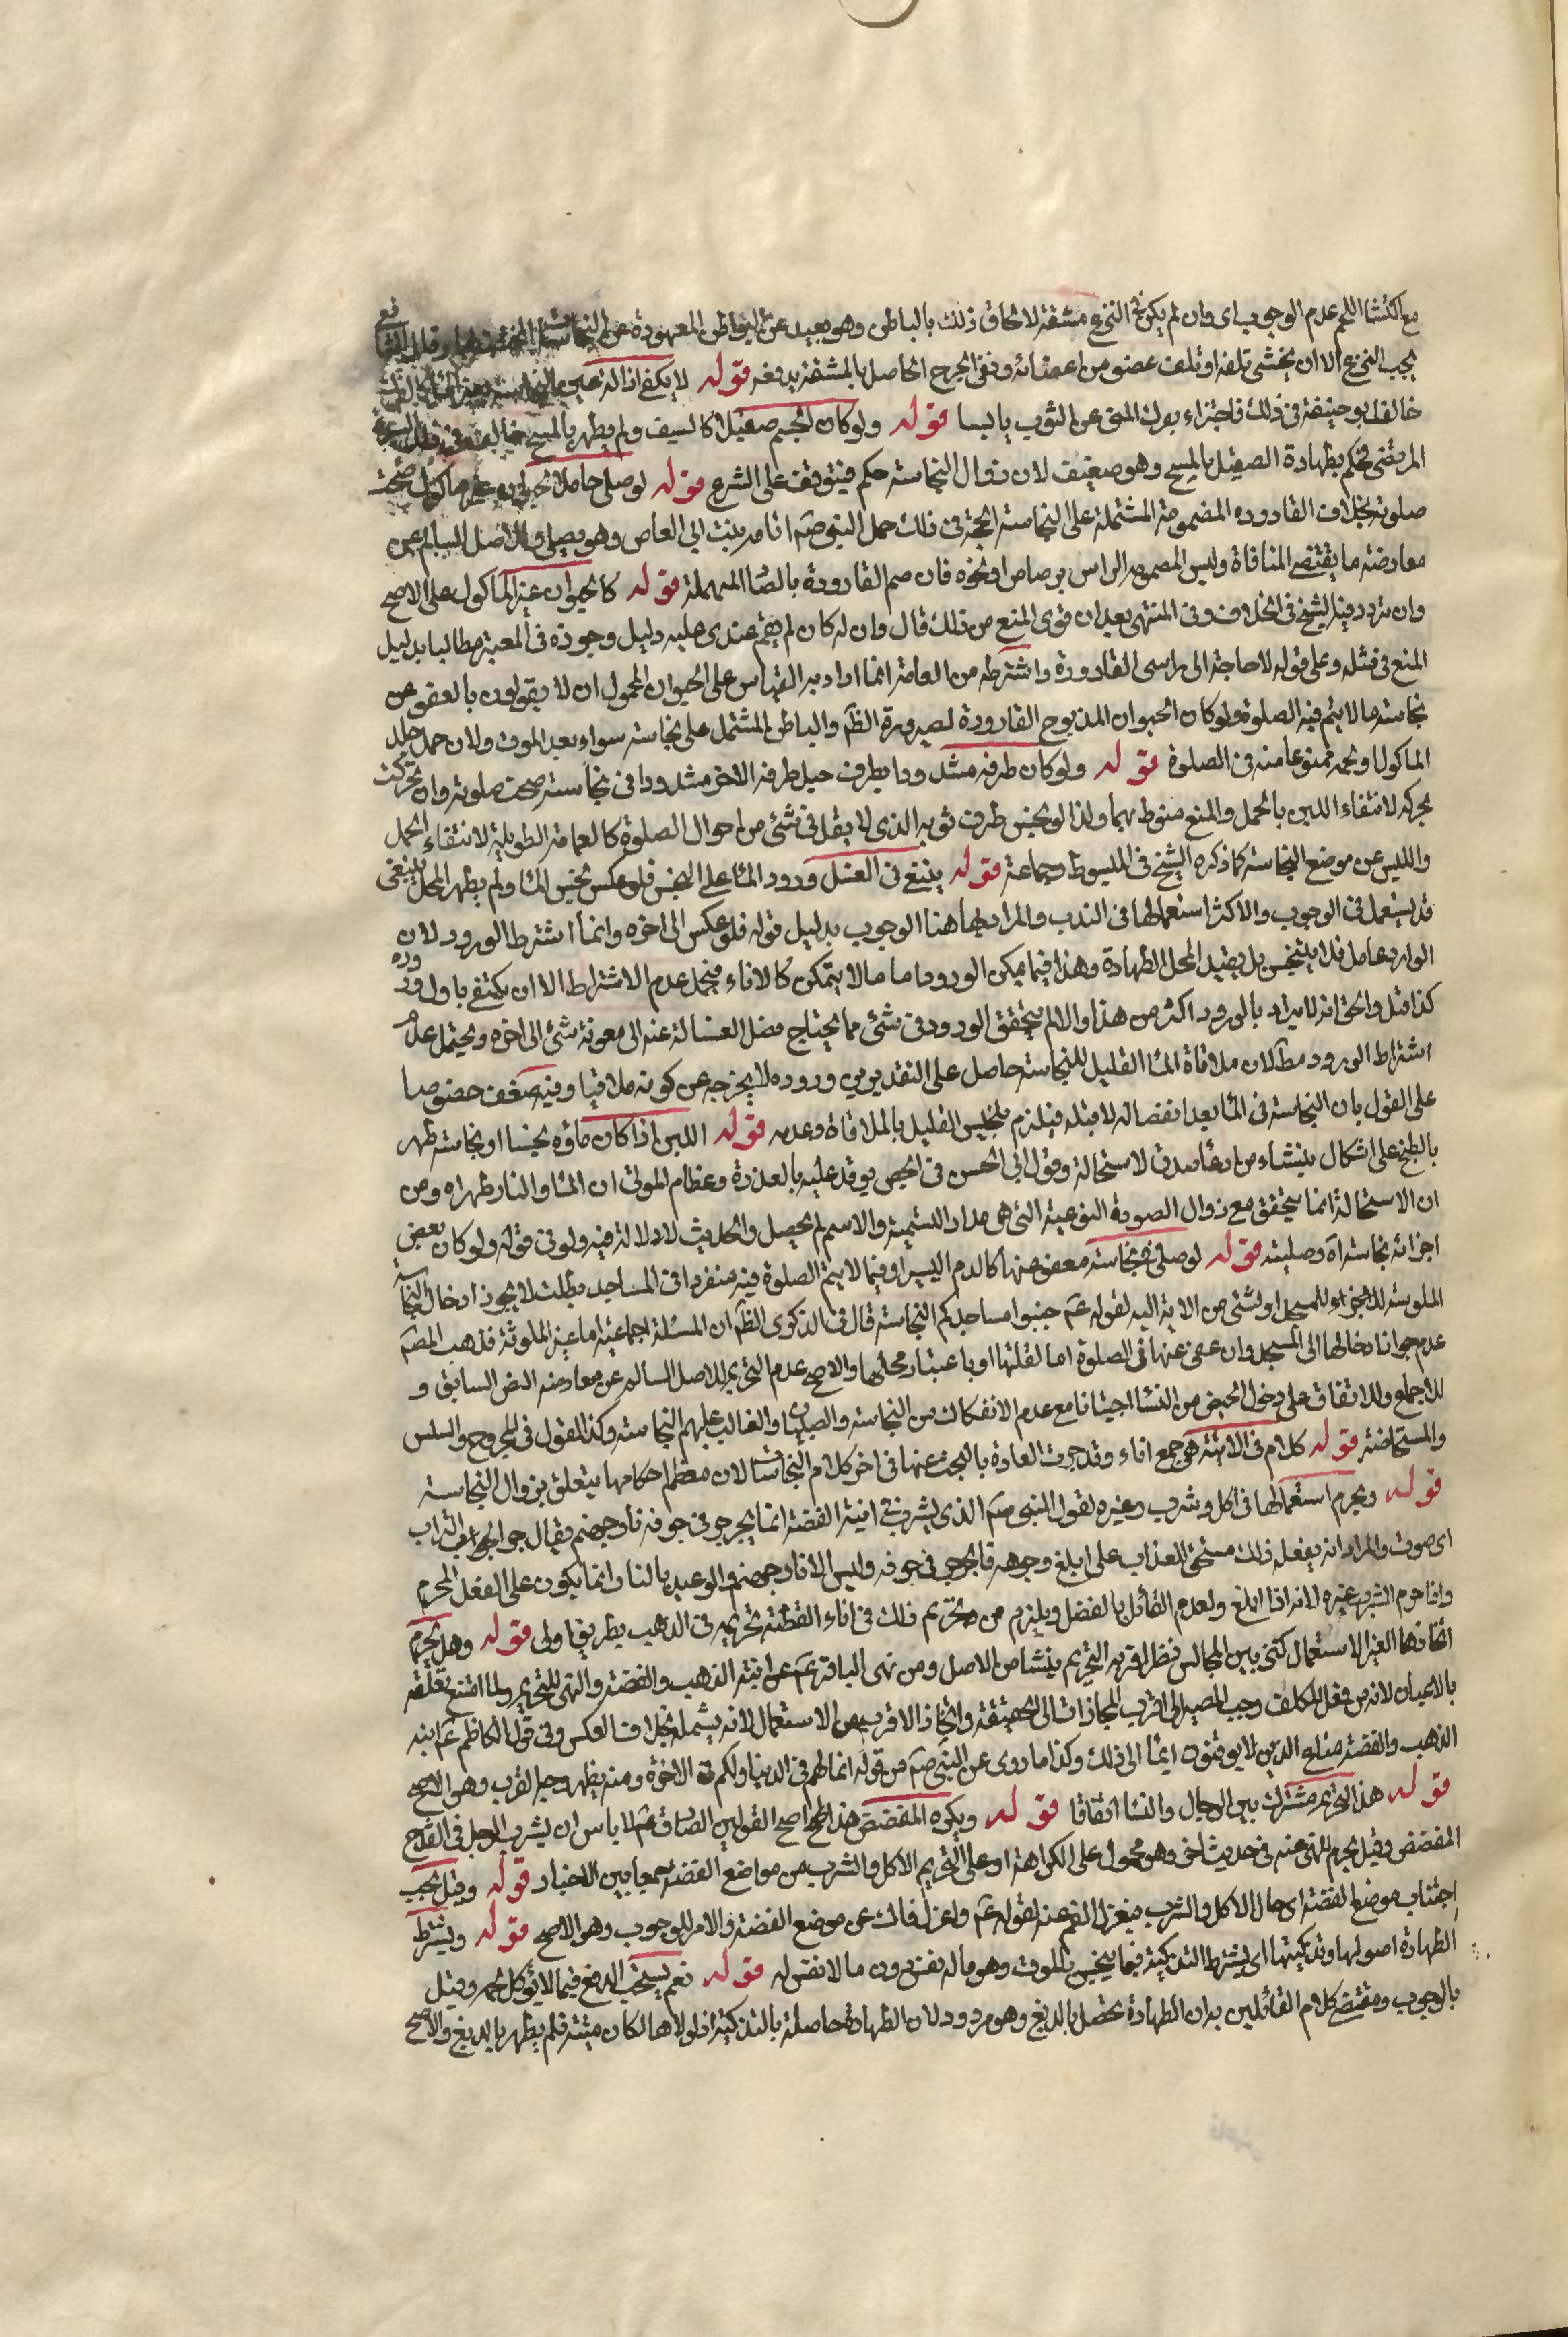 مع اكتسا اللحم عدم الوجوب اى وان لم يكن فى النزع مشقة لالحاق ذلك بالباطن وهو بعيد عن البواطن المعهودة
يجب النزع الا ان يخشى تلفه او تلف عضو من اعضائه ونفى الحرج الحاصل بالمشقة يدفعه قوله لا يكفى ازالة عين
خالف ابو حنيفة فى ذلك فاجتزاء بفرك المنى عن الثوب يابسا قوله ولو كان الجسم صقيلا كالسيف ولم يطهر بالمسح
المرتضى فحكم بطهارة الصقيل بالمسح وهو ضعيف لان زوال النجاسة حكم فيتوقف على الشرع قوله لو صلى حاملا لحيوان غير ماكول صحت
صلوته بخلاف القارورة المضمومة المشتملة على النجاسة الحجة فى ذلك حمل النبى صم امامه بنت ابى العاص وهو يصلى والاصل السالم عن
معارضة ما يقتضى المنافاة وليس المصموم الراس برصاص او نحوه فان صم القارورة بالصا المهملة قوله كالحيوان غير الماكول على الاصح
وان تردد فيه الشيخ فى الخلاف وفى المنتهى بعد ان قوى المنع من ذلك قال وان له كان لم يقم عندى عليه دليل وجوزه فى المعتبر مطالبا بدليل
المنع فى مثله وعلى قوله لا حاجة الى راسى القارورة واشترطه من العامة انما اراد به القياس على الحيوان المحمول ان لا يقولون بالعفو عن
نجاسة ما لا يتم فيه الصلوة ولو كان الحيوان المذبوح القارورة لصيرورة الظم والباطن المشتمل على نجاسة سواء بعد الموت ولان حمل جلد
الماكول او لحمه ممنوعا منه فى الصلوة قوله ولو كان طرفه مشدودا بطرف حبل طرفه الاخر مشدود فى نجاسة صحت صلوته وان تحركت
بحركته لانتفاء اللبس بالحمل والمنع منوط بهما ولذا لو نجس طرف ثوبه الذى لا يقل فى شئ من احوال الصلوة كالعمامة الطويلة لانتفاء الحمل
واللبس عن موضع النجاسة كما ذكره الشيخ فى المبسوط وجماعة قوله ينبغى فى الغسل ورود الما على النجس فلو عكس نجس الما ولم يطهر المحل ينبغى
قد يستعمل فى الوجوب والاكثر استعمالها فى الندب والمراد بها هنا الوجوب بدليل قوله فلو عكس الى اخره وانما اشترط الورود لان
الوارد عامل فلا يتنجس بل يفيد المحل الطهارة وهذا فيما يمكن الورود اما ما لا يتمكن كالاناء فيحمل عدم الاشتراط الا ان يكتفى باول وروده
كذا قيل والحق انه لا يراد بالورود اكثر من هذا والا لم يتحقق الورود فى شئ مما يحتاج فصل الغسالة عنه الى معونة شئ الى اخره ويحتمل عدم
اشتراط الورود مطلا لان ملاقاة الما القليل للنجاسة حاصل على التقديرين وروده لا يخرجه عن كونه ملاقيا وفيه ضعف خصوصا
على القول بان النجاسة فى الما بعد انفصاله لا قبله فيلزم تنجيس القليل بالملاقاة وعدمه قوله اللبن اذا كان ماؤه نجسا او نجاسة طهر
بالطبخ على اشكال ينشاء من ادعا صدق الاستحالة وقول ابى الحسن فى الجص يوقد عليه بالعذرة وعظام الموتى ان الما والنار طهراه ومن
ان الاستحالة انما يتحقق مع زوال الصورة النوعية التى هى مدار التسمية والاسم لم يحصل والحديث لا دلالة فيه ولو فى قوله ولو كان بعض
اجزائه نجاسة اه وصليته قوله لو صلى مع نجاسة معفو عنها كالدم اليسير او فيما لا يتم الصلوة فيه منفردا فى المساجد بطلت لا يجوز ادخال النجاسة
الملوثة للمسجد او لشئ من الاية اليه لقوله عم جنبوا مساجدكم النجاسة قال فى الذكرى الظم ان المسئلة اجماعية اما غير الملوثة فذهب المصم
عدم جواز ادخالها الى المسجد وان عفى عنها فى الصلوة اما لقلتها او باعتبار محلها والاصح عدم التحريم للاصل السالم عن معارضه النص السابق و
للاجماع وللاتفاق على دخول الحيض من النسا اجتيازا مع عدم الانفكاك من النجاسة والصبيان والغالب عليهم النجاسة وكذا القول فى المجروح والسلس
والمستحاضة قوله كلام فى الانية هى جمع اناء وقد جرت العادة بالبحث عنها فى اخر كلام النجاسات لان معظم احكامها يتعلق بزوال النجاسة
قوله ويحرم استعمالها فى اكل وشرب وغيره لقول النبى صم الذى يشرب فى انية الفضة انما يجرجر فى جوفه نار جهنم يقال جرجر الشراب
اى صوت والمراد انه بفعله ذلك مستحق العذاب على ابلغ وجوهه فالجرجر فى جوفه وليس الا نار جهنم والوعيد بالنار انما يكون على الفعل المحرم
واذا حرم الشرب غيره لانه اذا ابلغ ولعدم القائل بالفصل ويلزم من تحريم ذلك فى اناء الفضة تحريمه فى الذهب بطريق اولى قوله وهل يحرم
اتخاذها لغير الاستعمال كتزيين المجالس نظر اقربه التحريم ينشا من الاصل ومن نهى الباقر عم عن انية الذهب والفضة والنهى للتحريم ولما امتنع تعلقه
بالاعيان لانه من فعل المكلف وجب المصير الى اقرب المجازات الى الحقيقة واتخاذ الاقرب من الاستعمال لانه يشمله بخلاف العكس وفى قول الكاظم عم انية
الذهب والفضة متاع الذين لا يوقنون ايما الى ذلك وكذا ما روى عن النبى صم من قوله انما لهم فى الدنيا ولكم فى الاخرة ومنه يظهر وجه القرب وهو الاصح
قوله هذا التحريم مشترك بين الرجال والنسا اتفاقا قوله ويكره المفضض هذا اصح القولين الصادق عم لا باس ان يشرب الرجل فى القدح
المفضض وقيل يحرم للنهى عنه فى حديث اخر وهو محمول على الكراهة او على التحريم الاكل والشرب من مواضع الفضة جمعا بين الاخبار قوله وقيل يجب
اجتناب موضع الفضة اى حال الاكل والشرب فيعزل الفم عنه لقوله عم واعزل فاك عن موضع الفضة والامر للوجوب وهو الاصح قوله ويشترط
الطهارة اصولها وتذكيتها اى يشترط التذكية فيما ينجس بالموت وهو ما له نفس دون ما لا نفس له قوله نعم يستحب الدبغ فيما لا يؤكل لحمه وقيل
بالوجوب ومقتضى كلام القائلين به ان الطهارة تحصل بالدبغ وهو مردود لان الطهارة حاصلة بالتذكية اذ لولاها لكان ميتة فلم يطهر بالدبغ والاصح